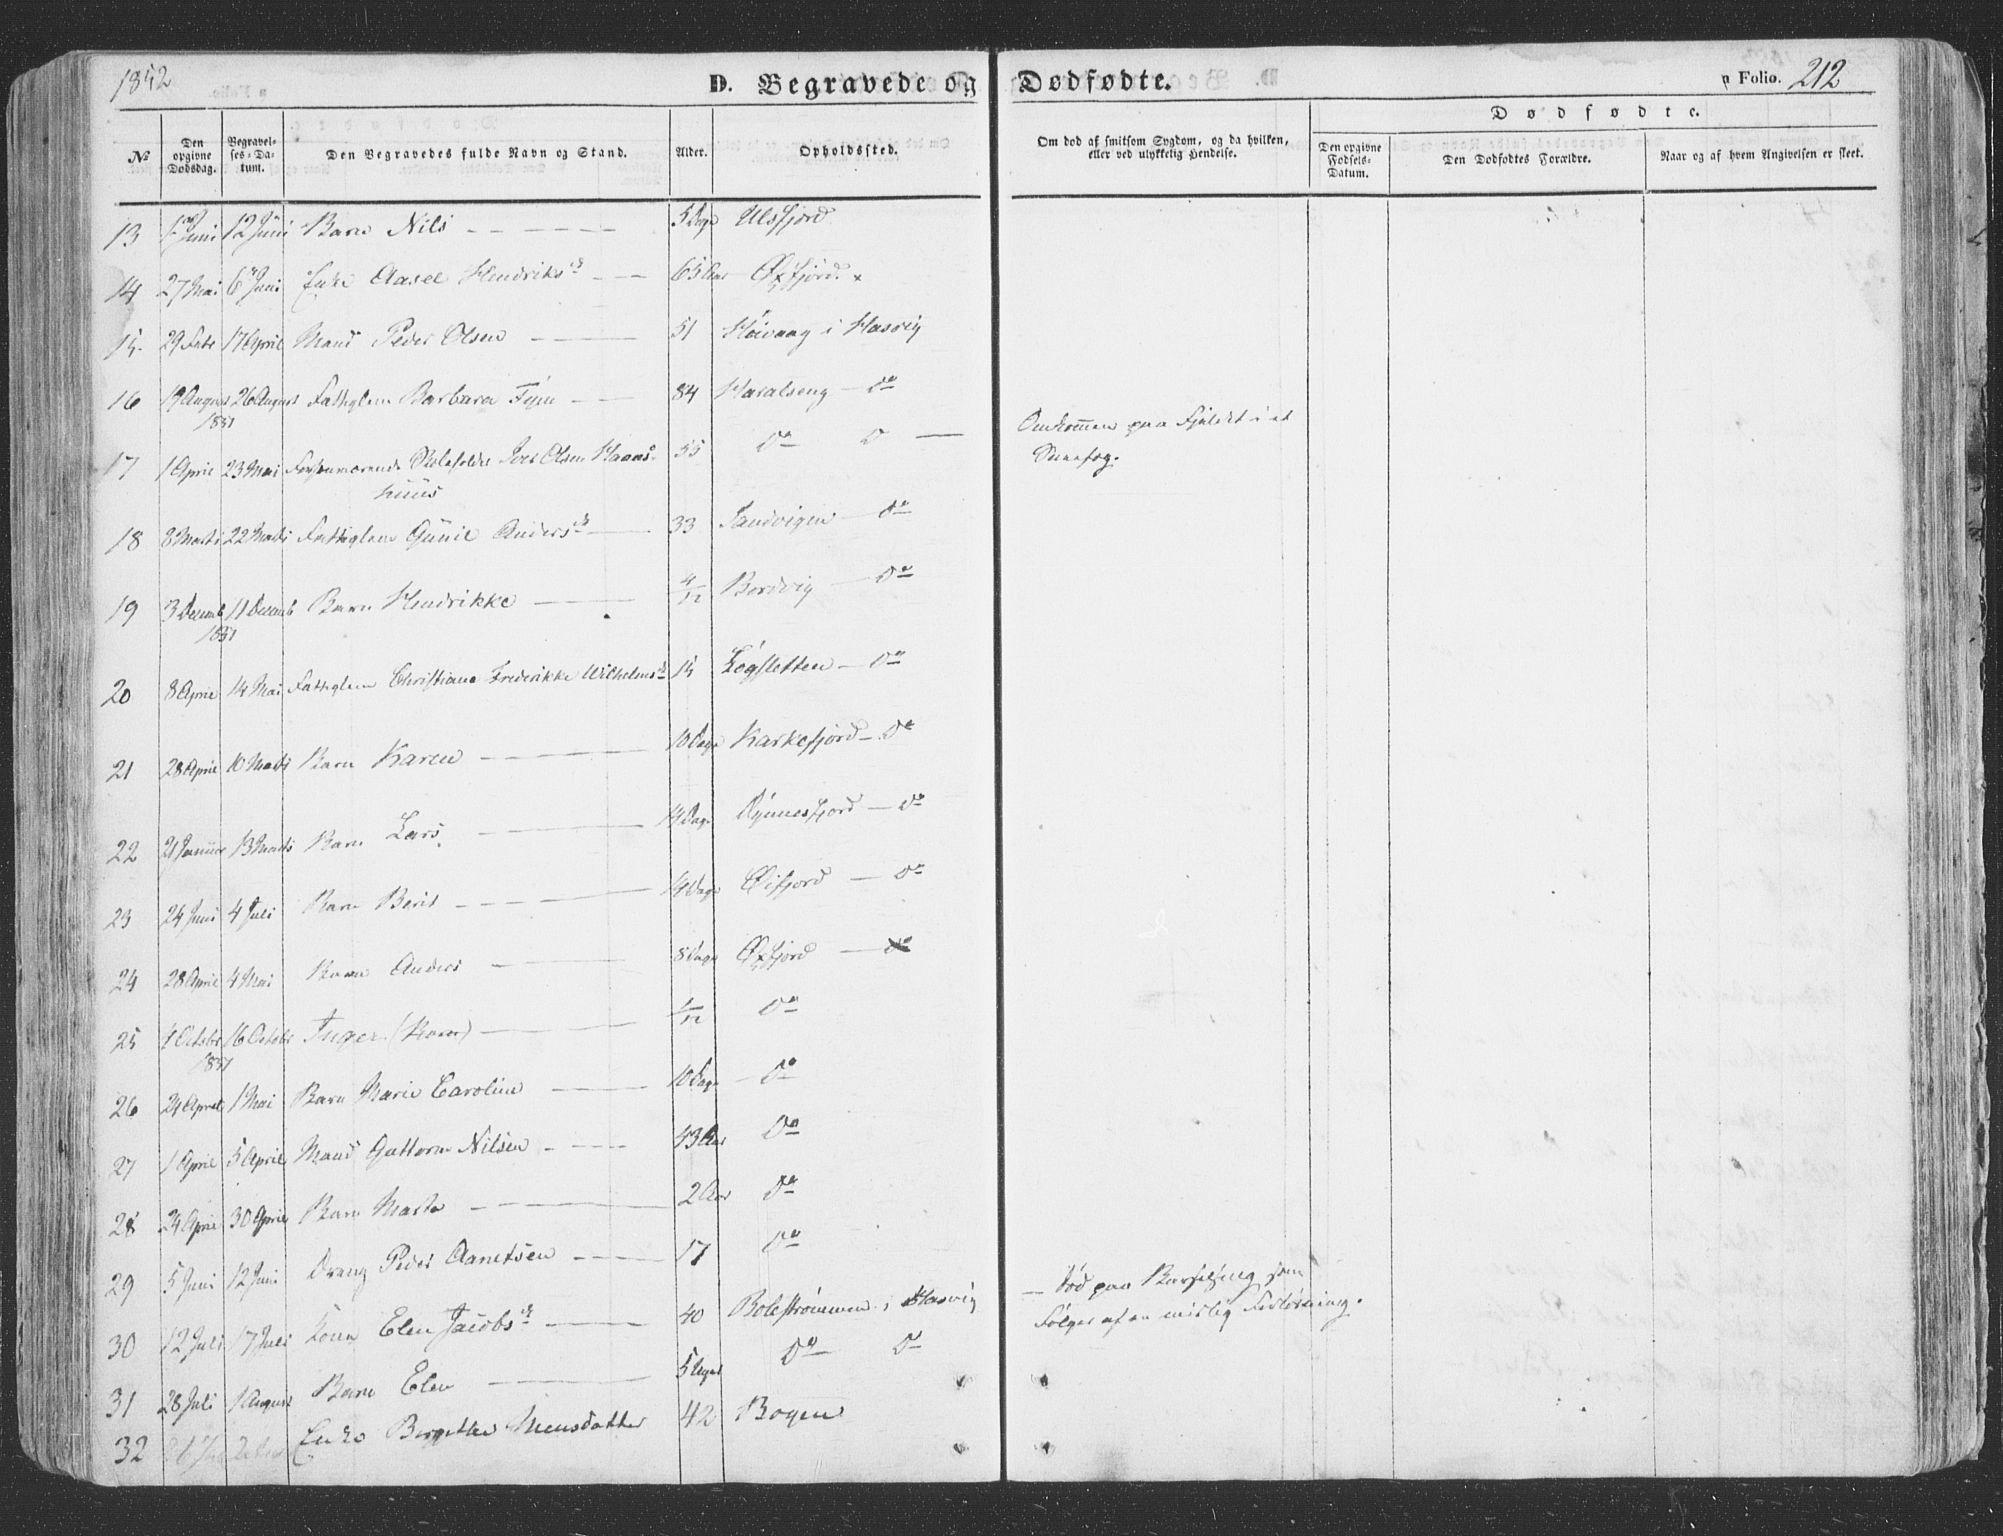 1852
D. Begravede og Dødfødte.
Folio. 212
Dødfødte.
No
Den opgivne Dødsdag.
Begravelses-Datum.
Den Begravedes fulde Navn og Stand.
Alder.
Opholdssted.
Om død af smitsom Sygdom, og da hvilken, eller ved ulykkelig Hendelse.
Den opgivne Fødsels-Datum.
Den Dødfødtes Forældre.
Naar og af hvem Angivelsen er skeet.
13 Juni 12 Juni Barn Nils 5 Dage Ulsfjord
14 27 Mai 6 Juni Enke Aasel Hendriksd. 65 Aar Øxfjord. x
15 29 Febr 17 April Mand Peder Olsen 51 Høivaag i Hasvig
16 19 August 1851 26 August Fattiglem Barbara 84 Haralseng – Do
17 1 April 23 Mai Forhenværende Skoleholder Iver Olsen Hans- 55 Do D Omkommen paa Fjeldet i et
huus Sneefog.
18 8 Marts 22 Marts Fattiglem Gunil Andersd. 33 Sandvigen – Do
19 3 Decemb 1851 11 Decemb Barn Hendrikke 4/12 Bordvig – Do
20 8 April 14 Mai Fattiglem Christiane Frederikke Wilhelmsd. 15 Løgsletten – Do
21 28 April 10 Barn Karen 10 Dage Karkefjord – Do
22 21 Januar 13 Marts Barn Lars 14 Dage Dynnesfjord – Do
23 24 Juni 4 Juli Barn Berit 14 Dage Øifjord – Do
24 28 April 4 Mai Barn Anders 8 Dage Øxfjord – Do
25 Octobr 1851 16 Octobr Inger (Barn) 1/12 Do
26 24 April 1 Mai Barn Marie Caroline 10 Dage – Do
27 1 April 5 April Mand Guttorm Nilsen 43 Aar Do
28 24 April 30 April Barn Marta 2 Aar Do
29 5 Juni 12 Juni Dreng Peder Danielsen 17 Do
30 12 Juli 17 Juli Kone Elen Jacobsd. 40 Bolestrømmen i Hasvig – Død paa Barselseng som
Følger af en mislig Forløsning.
31 28 Juli 1 August Barn Elen 5 Uger Do D
32 Enke Bergitte Monsdatter 42 Bogen